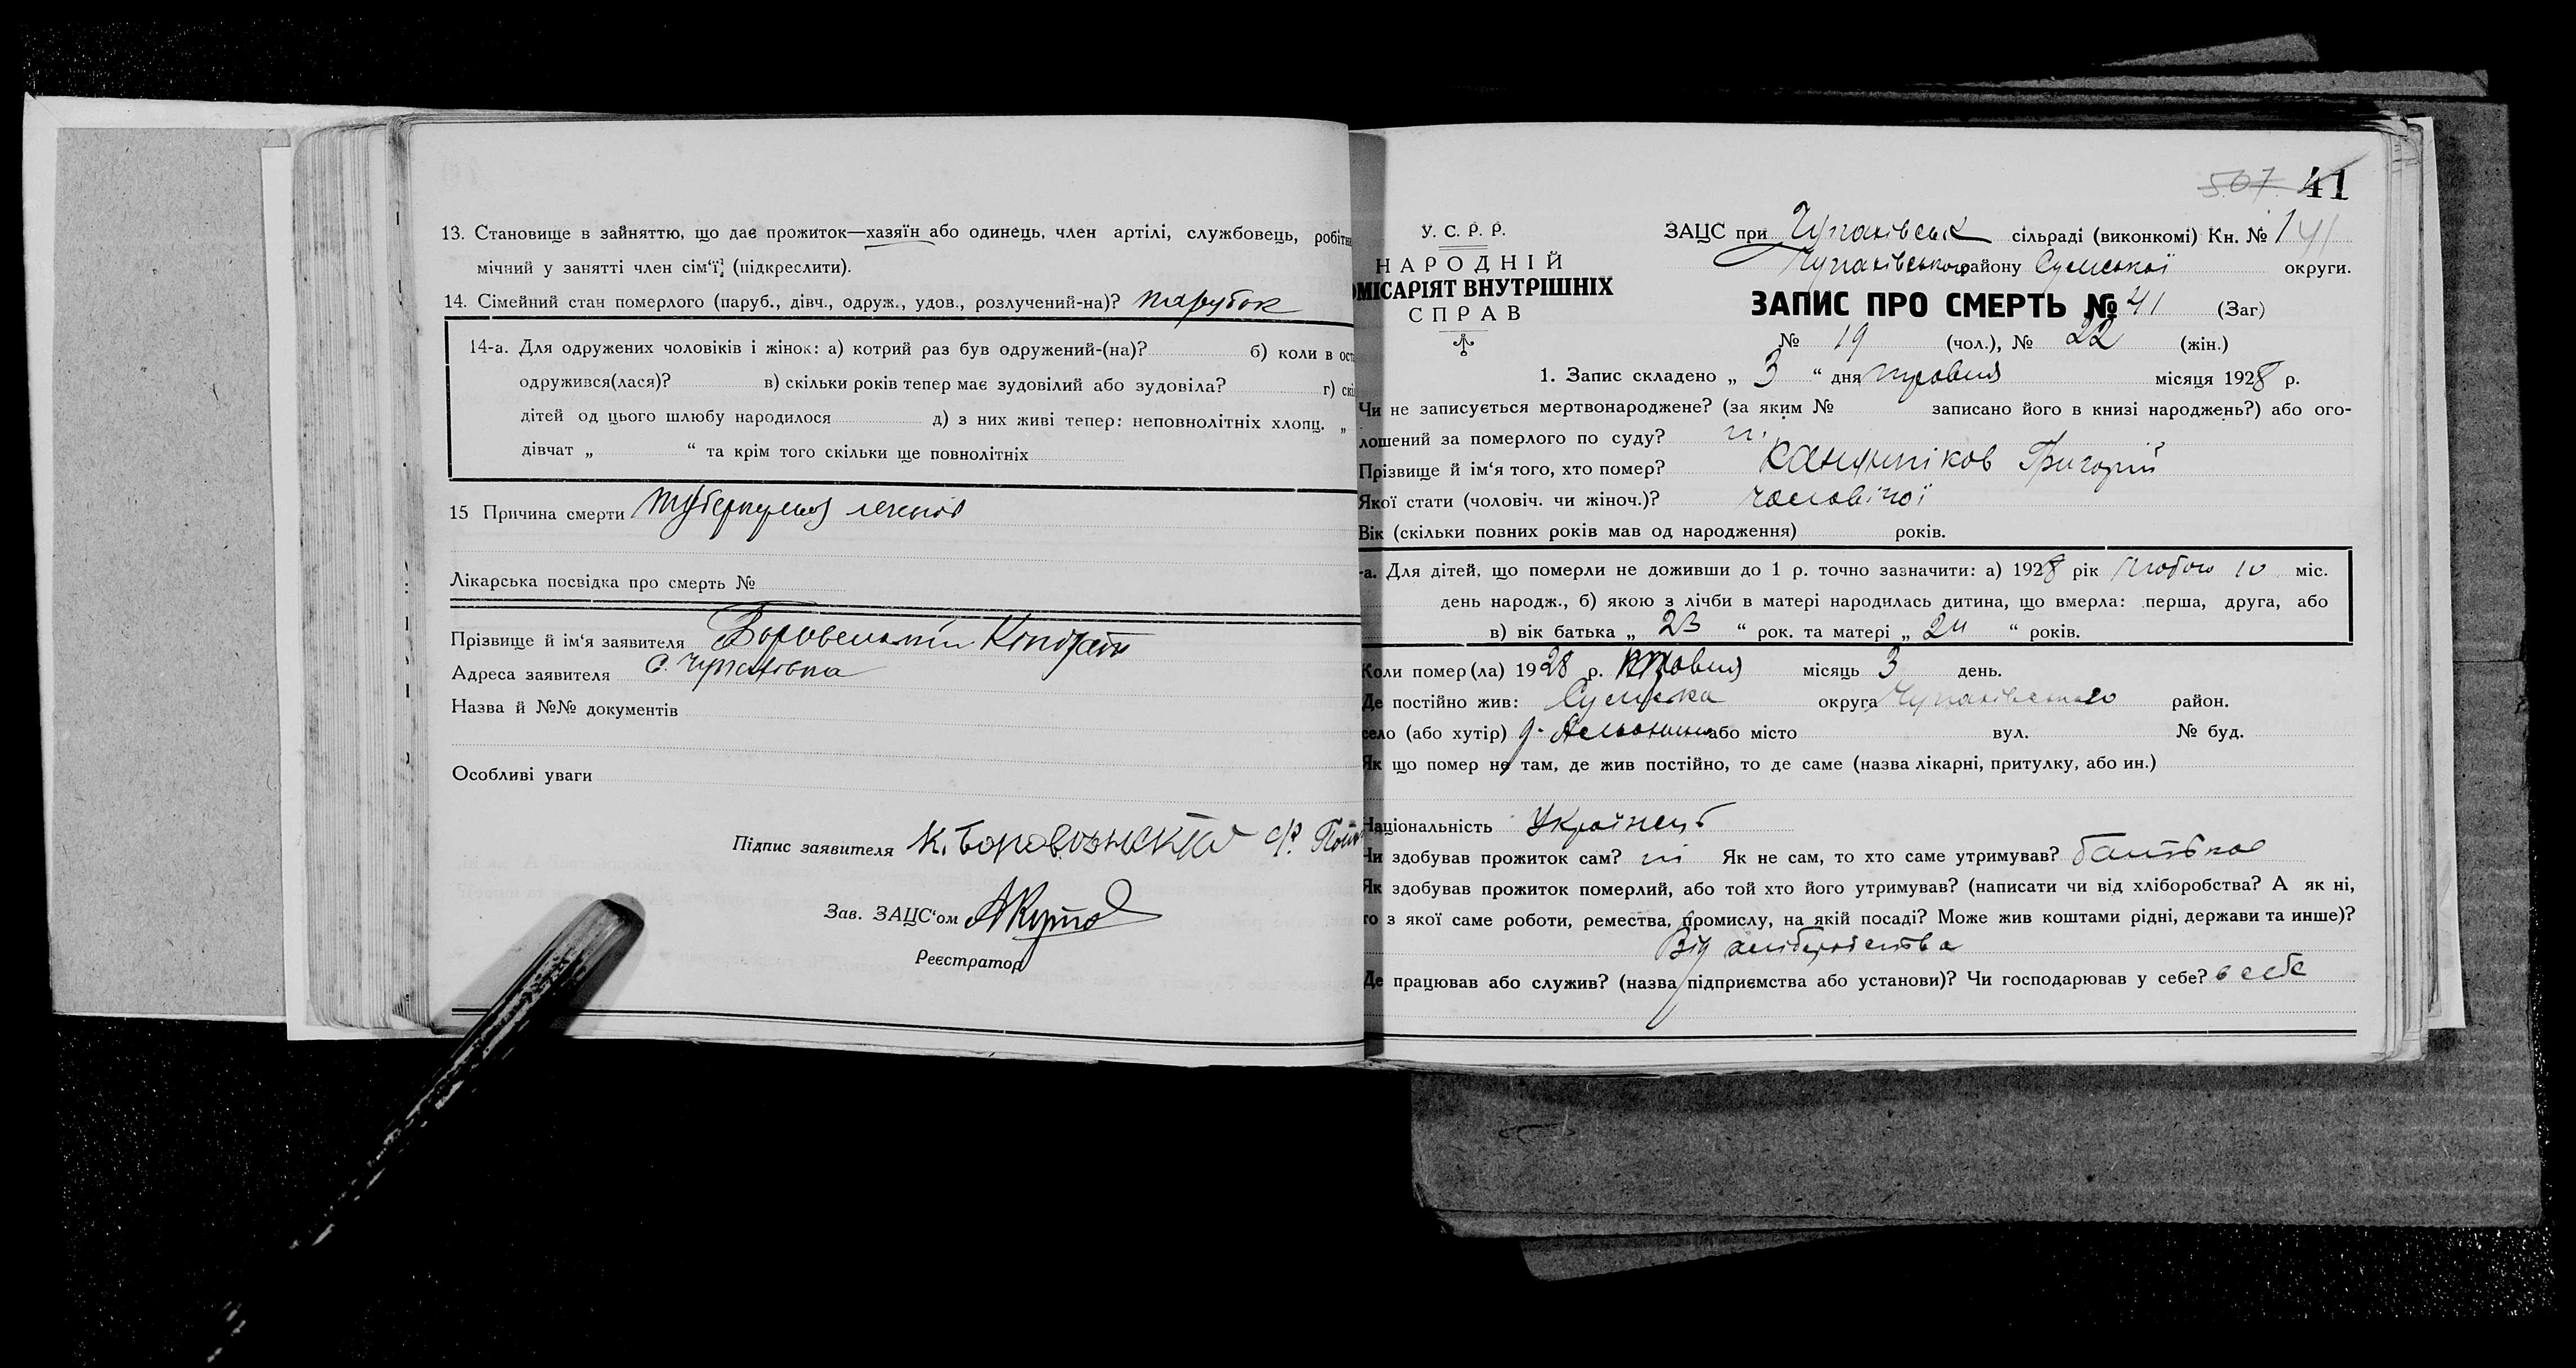 13. Становище в зайняттю, що дає прожиток—хазяїн або одинець, член артілі, службовець, робітн
мічний у занятті член сім'ї (підкреслити).
14. Сімейний стан померлого (паруб., дівч., одруж., удов., розлучений-на)? парубок
14-а. Для одружених чоловіків і жінок: а) котрий раз був одружений-(на)? б) коли в ост
одружився(лася)? в) скільки років тепер має зудовілий або зудовіла? г) скі
дітей од цього шлюбу народилося д) з них живі тепер: неповнолітніх хлопц. „
дівчат „ “ та крім того скільки ще повнолітніх
15 Причина смерти туберкульоз легенів
Лікарська посвідка про смерть №
Прізвище й ім'я заявителя Кіндрат
Адреса заявителя с. Чупахівка
Назва й №№ документів
Особливі уваги
Підпис заявителя К.
Зав. ЗАЦС'ом
Реєстратор
507 41
У. С. Р. Р.
НАРОДНІЙ
ОМІСАРІЯТ ВНУТРІШНІХ
СПРАВ
ЗАЦС при Чупахівськ сільраді (виконкомі) Кн. № 1 41
Чупахівського району Сумської округи.
ЗАПИС ПРО СМЕРТЬ № 41 (Заг)
№ 19 (чол.), № 22 (жін.)
1. Запис складено „ 3 “ дня травня місяця 1928 р.
Чи не записується мертвонароджене? (за яким № записано його в книзі народжень?) або ого-
лошений за померлого по суду? ні
Прізвище й ім'я того, хто помер? Григорій
Якої стати (чоловіч. чи жіноч.)? чоловічої
Вік (скільки повних років мав од народження) років.
-а. Для дітей, що померли не доживши до 1 р. точно зазначити: а) 1928 рік лютого 10 міс.
день народж., б) якою з лічби в матері народилась дитина, що вмерла: перша, друга, або
в) вік батька „ 23 “ рок. та матері „ 24 “ років.
Коли помер(ла) 1928 р. травня місяць 3 день.
Де постійно жив: Сумська округа Чупахівського район.
село (або хутір) або місто вул. № буд.
Як що помер не там, де жив постійно, то де саме (назва лікарні, притулку, або ин.)
Національність Українець
Чи здобував прожиток сам? ні Як не сам, то хто саме утримував? батько
Як здобував прожиток померлий, або той хто його утримував? (написати чи від хліборобства? А як ні,
то з якої саме роботи, ремества, промислу, на якій посаді? Може жив коштами рідні, держави та инше)?
Від хліборобства
Де працював або служив? (назва підприємства або установи)? Чи господарював у себе? в себе